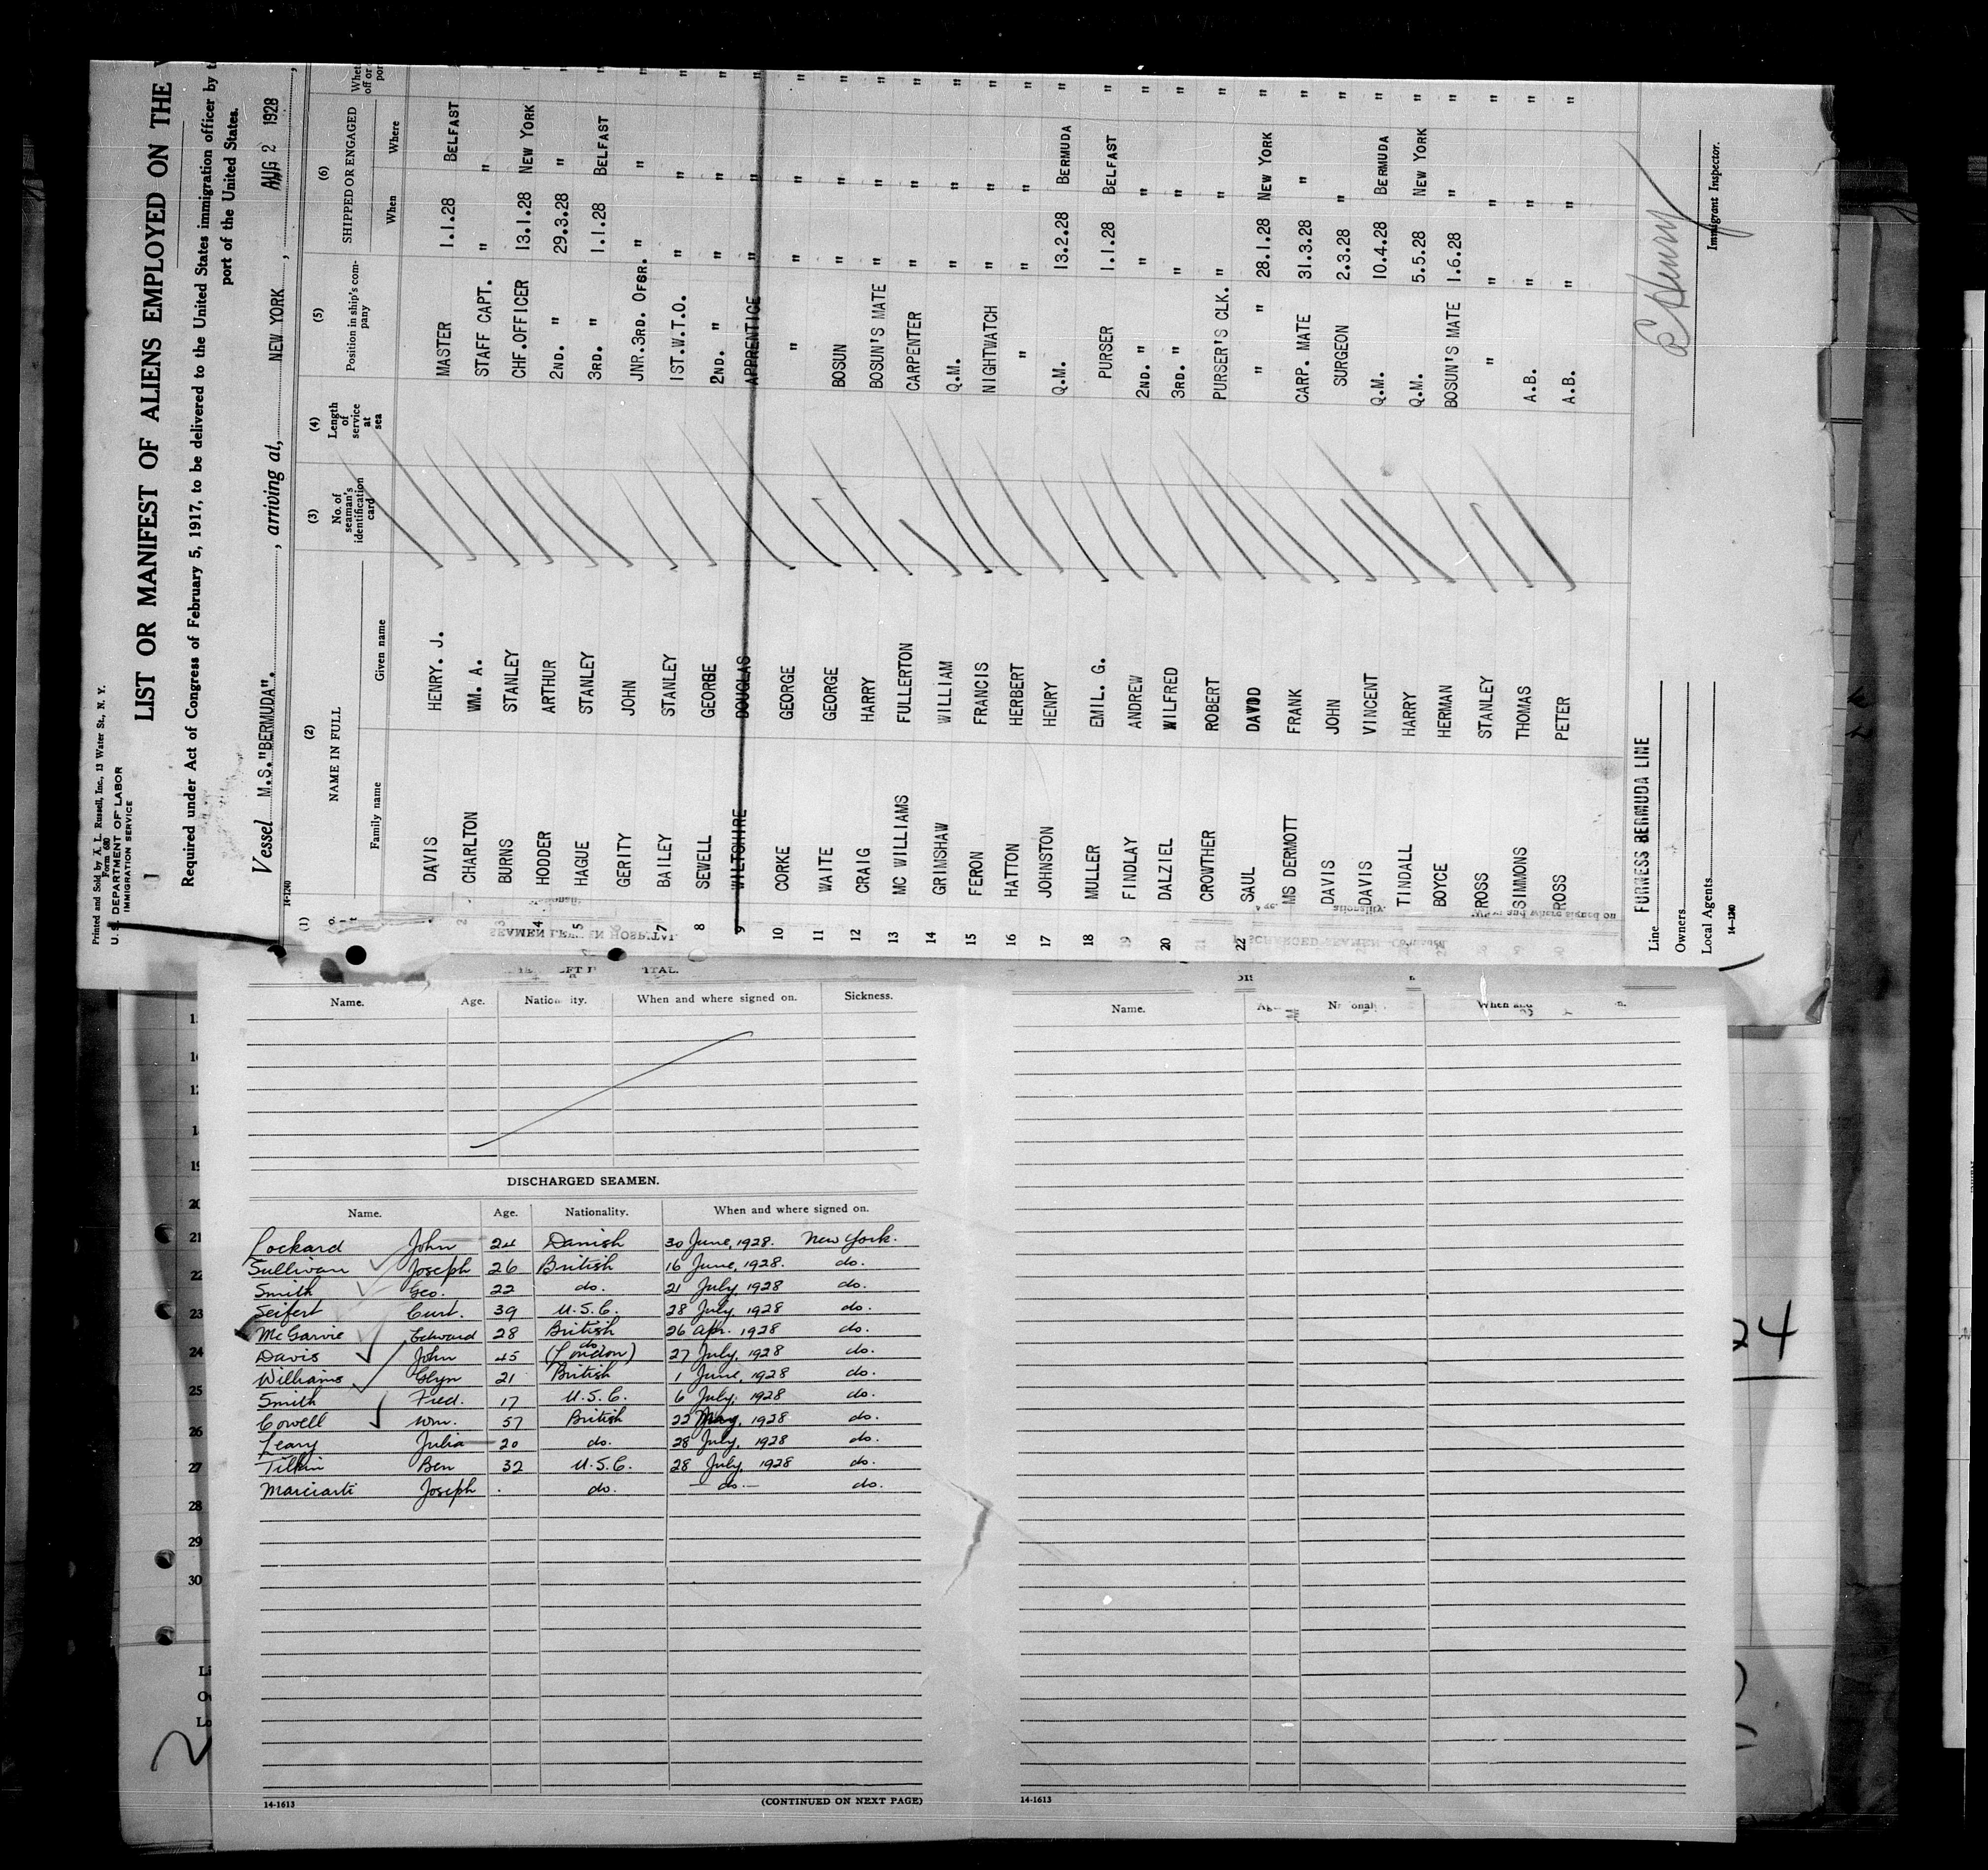 Printed and Sold by A. L. Russell, Inc., 13 Water St., N. Y.
Form 680
U. S. DEPARTMENT OF LABOR
IMMIGRATION SERVICE
LIST OR MANIFEST OF ALIENS EMPLOYED ON THE
Required under Act of Congress of February 5, 1917, to be delivered to the United States immigration officer by
port of the United States.
Vessel M.S."BERMUDA"., arriving at, NEW YORK, AUG 2 1928,
14-1240
(1) (2) (3) (4) (5) (6)
NAME IN FULL No. of seaman's identification card Length of service at sea Position in ship's company SHIPPED OR ENGAGED
Family name Given name When Where
DAVIS HENRY. J. MASTER 1.1.28 BELFAST "
2 CHARLTON WM. A. STAFF CAPT. " " "
3 BURNS STANLEY CHF.OFFICER 13.1.28 NEW YORK "
4 HODDER ARTHUR 2ND. " 29.3.28 " "
5 HAGUE STANLEY 3RD. " 1.1.28 BELFAST "
GERITY JOHN JNR.3RD. OFSR. " " "
7 BAILEY STANLEY 1ST.W.T.O. " " "
8 SEWELL GEORGE 2ND. " " " "
9 WILTSHIRE DOUGLAS APPRENTICE " " "
10 CORKE GEORGE " " " "
11 WAITE GEORGE BOSUN " " "
12 CRAIG HARRY BOSUN'S MATE " " "
13 MC WILLIAMS FULLERTON CARPENTER " " "
14 GRINSHAW WILLIAM Q.M. " " "
15 FERON FRANCIS NIGHTWATCH " " "
16 HATTON HERBERT " " " "
17 JOHNSTON HENRY Q.M. 13.2.28 BERMUDA "
18 MULLER EMIL. G. PURSER 1.1.28 BELFAST "
19 FINDLAY ANDREW 2ND. " " " "
20 DALZIEL WILFRED 3RD. " " " "
21 CROWTHER ROBERT PURSER'S CLK. " " "
22 SAUL DAVID " " 28.1.28 NEW YORK "
MS DERMOTT FRANK CARP. MATE 31.3.28 " "
DAVIS JOHN SURGEON 2.3.28 " "
DAVIS VINCENT Q.M. 10.4.28 BERMUDA "
TINDALL HARRY Q.M. 5.5.28 NEW YORK "
BOYCE HERMAN BOSUN'S MATE 1.6.28 " "
ROSS STANLEY " " " "
SIMMONS THOMAS A.B. " " "
ROSS PETER A.B. " " "
Line FURNESS BERMUDA LINE
Owners
Local Agents
14-1240
Immigrant Inspector.
Name. Age. Nationality. When and where signed on. Sickness.
DISCHARGED SEAMEN.
Name. Age. Nationality. When and where signed on.
Lockard John 24 Danish 30 June, 1928. New York.
Sullivan Joseph 26 British 16 June, 1928. do.
Smith Geo. 22 do. 21 July, 1928 do.
Seifert Curt. 39 U.S.C. 28 July, 1928 do.
McGarvie Edward 28 British 26 Apr. 1928 do.
Davis John 45 do (London) 27 July, 1928 do.
Williams Glyn 21 British 1 June, 1928 do.
Smith Fred. 17 U.S.C. 6 July, 1928 do.
Cowell Wm. 57 British 22 May, 1928 do.
Leary Julia 20 do. 28 July, 1928 do.
Tilkin Ben 32 U.S.C. 28 July, 1928 do.
Marciarti Joseph . do. —do.— do.
14-1613
(CONTINUED ON NEXT PAGE)
Name.
14-1613
19
20
21
22
23
24
25
26
27
28
29
30
24
2